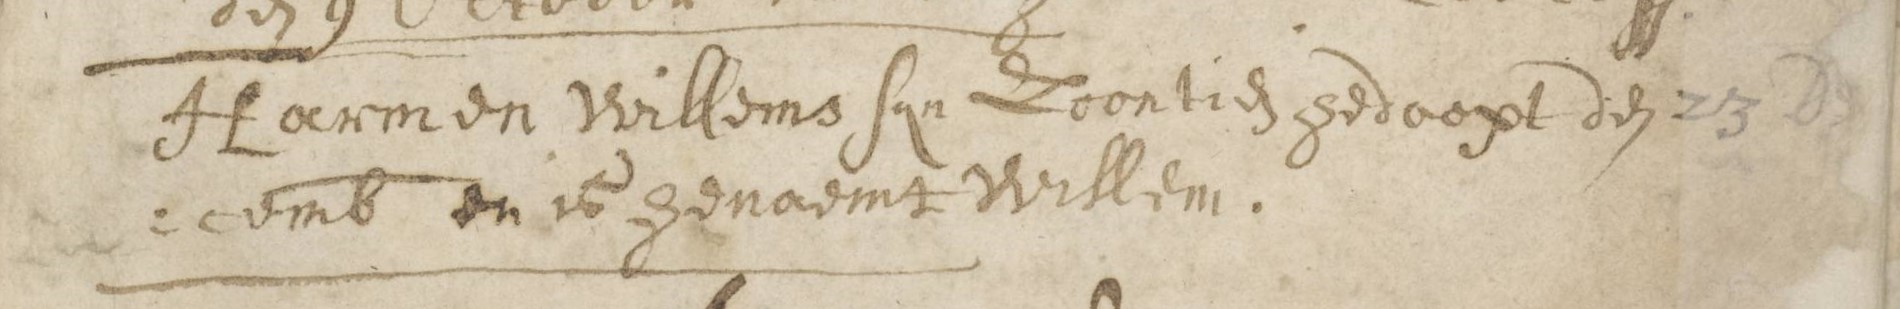 den 9 October
Harmen Willems syn Soontien gedoopt den 23 De
:cemb en is genaemt Willem.